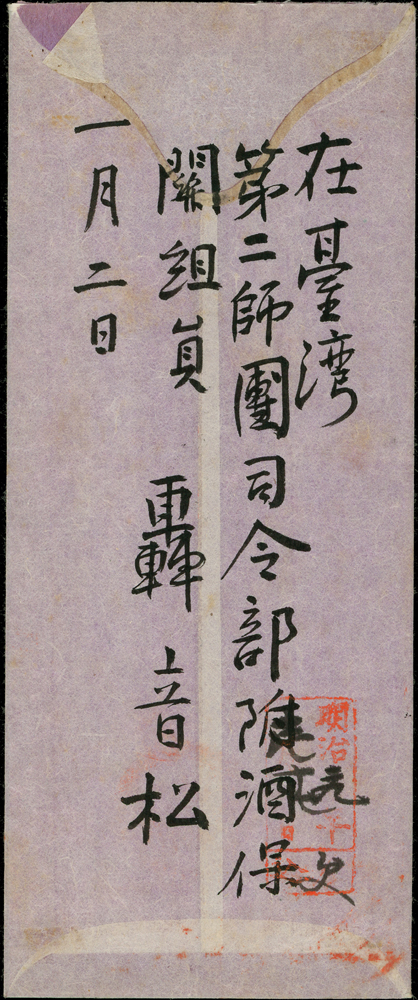 在臺灣
第二師團司令部附酒保
關組員 轟音松
一月二日
明治